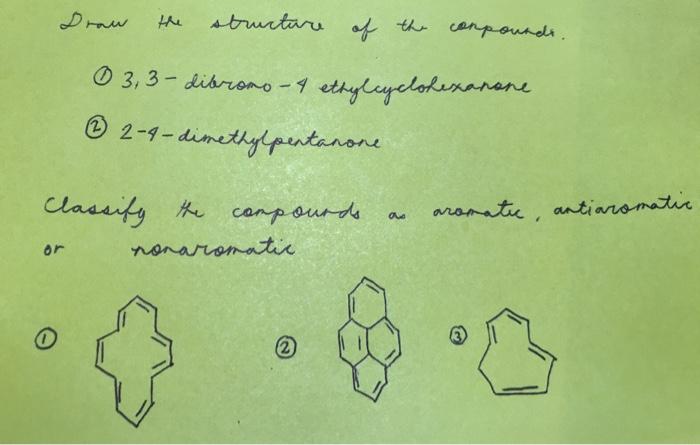 Draw the structure of the compounds.
① 3,3-dibromo-4 ethylcyclohexanone
② 2-4-dimethylpentanone
Classify the compounds as aromatic, antiaromatic
or nonaromatic
① ② ③